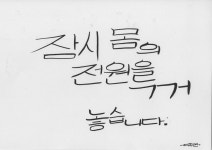 잠시 몸의
전원을
꺼
놓습니다.